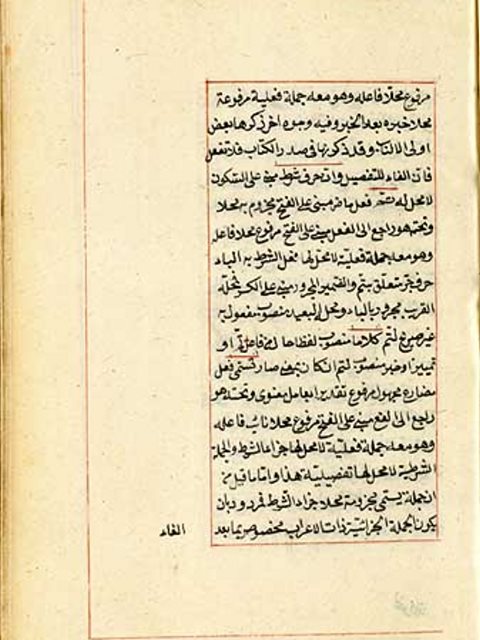 مرفوع محلا فاعله وهو معه جملة فعلية مرفوعة
محلا خبره بعد الخبر وفيه وجوه اخر ذكرها بعض
اولى الالباب وقد ذكرتها فى صدر الكتاب فلا تغفل
فان الفاء للتفصيل وان حرف شرط مبنى على السكون
لا محل له تم فعل ماض مبنى على الفتح مجزوم به محلا
وتحته هو راجع الى الفعل مبنى على الفتح مرفوع محلا فاعله
وهو معه جملة فعلية لا محل لها فعل الشرط به الباء
حرف جر متعلق بتم والضمير المجرور مبنى على الكسر فمحله
القريب مجرور بالباء ومحله البعيد منصوب مفعول به
غير صريح لتم كلاما منصوب لفظا حال من فاعل تم او
تمييز او خبر منصوب لتم ان كان بمعنى صار يسمى فعل
مضارع مجهول مرفوع تقديرا بعامل معنوى وتحته هو
راجع الى الفعل مبنى على الفتح مرفوع محلا نائب فاعله
وهو معه جملة فعلية لا محل لها جزاء الشرط والجملة
الشرطية لا محل لها تفصيلية هذا واما ما قيل من
ان جملة يسمى مجزومة محلا جزاء الشرط فمردود بان
كون الجملة الجزائية ذات الاعراب مخصوص بما بعد
الفاء